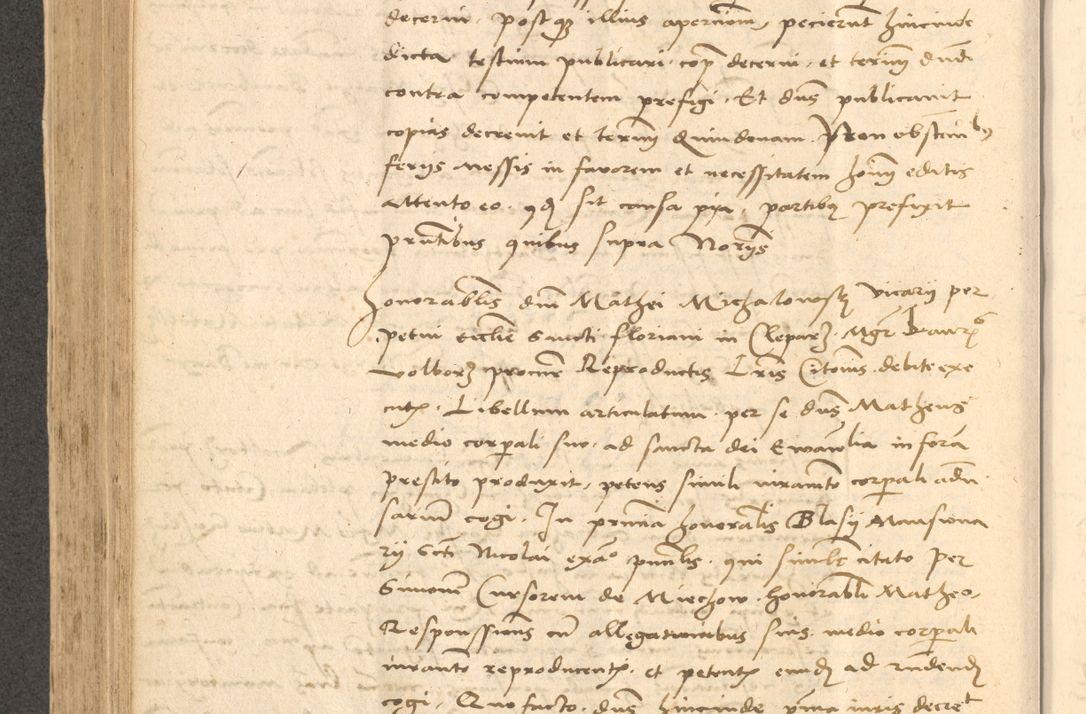 decerni. postq illius apercionem, pecierunt hincinde
dicta testium publicari. cop decerni. et termm dnd
contra competentem prefigi. Et dns publicavit
copias decrevit et termm Quindenam. Non obstantibus
ferys Messis in favorem et necessitatem hom editis
Attento eo. qd sit causa pia, partibus prefixit
pntibus quibus supra Norys
Honorablis dni Mathei Michalowsky vicarii per
petui ecclie Sancti floriani in Cleparz. Mgr Laurs
Volborz procme Reproductis Lris Citonis. debite exe
cutz. Libellum articulatum. per se dns Matheus
medio corpali suo. ad sancta dei Ewanlia in forma
prestito produxit, petens simili iuramto corpali advr
sarium cogi. In pnna honoralis Blasy Mansiona
ry Scti Nicolai exaco pnnlis. qui simile citato per
Simonem Cursorem de Miechow. honorabli Matheo.
Responssions cum allegationibus suis. medio corpali
iuramto reproducentz. et petentz eundem ad rndend
cogi. Quo facto. dns hincinde pma iuris decret